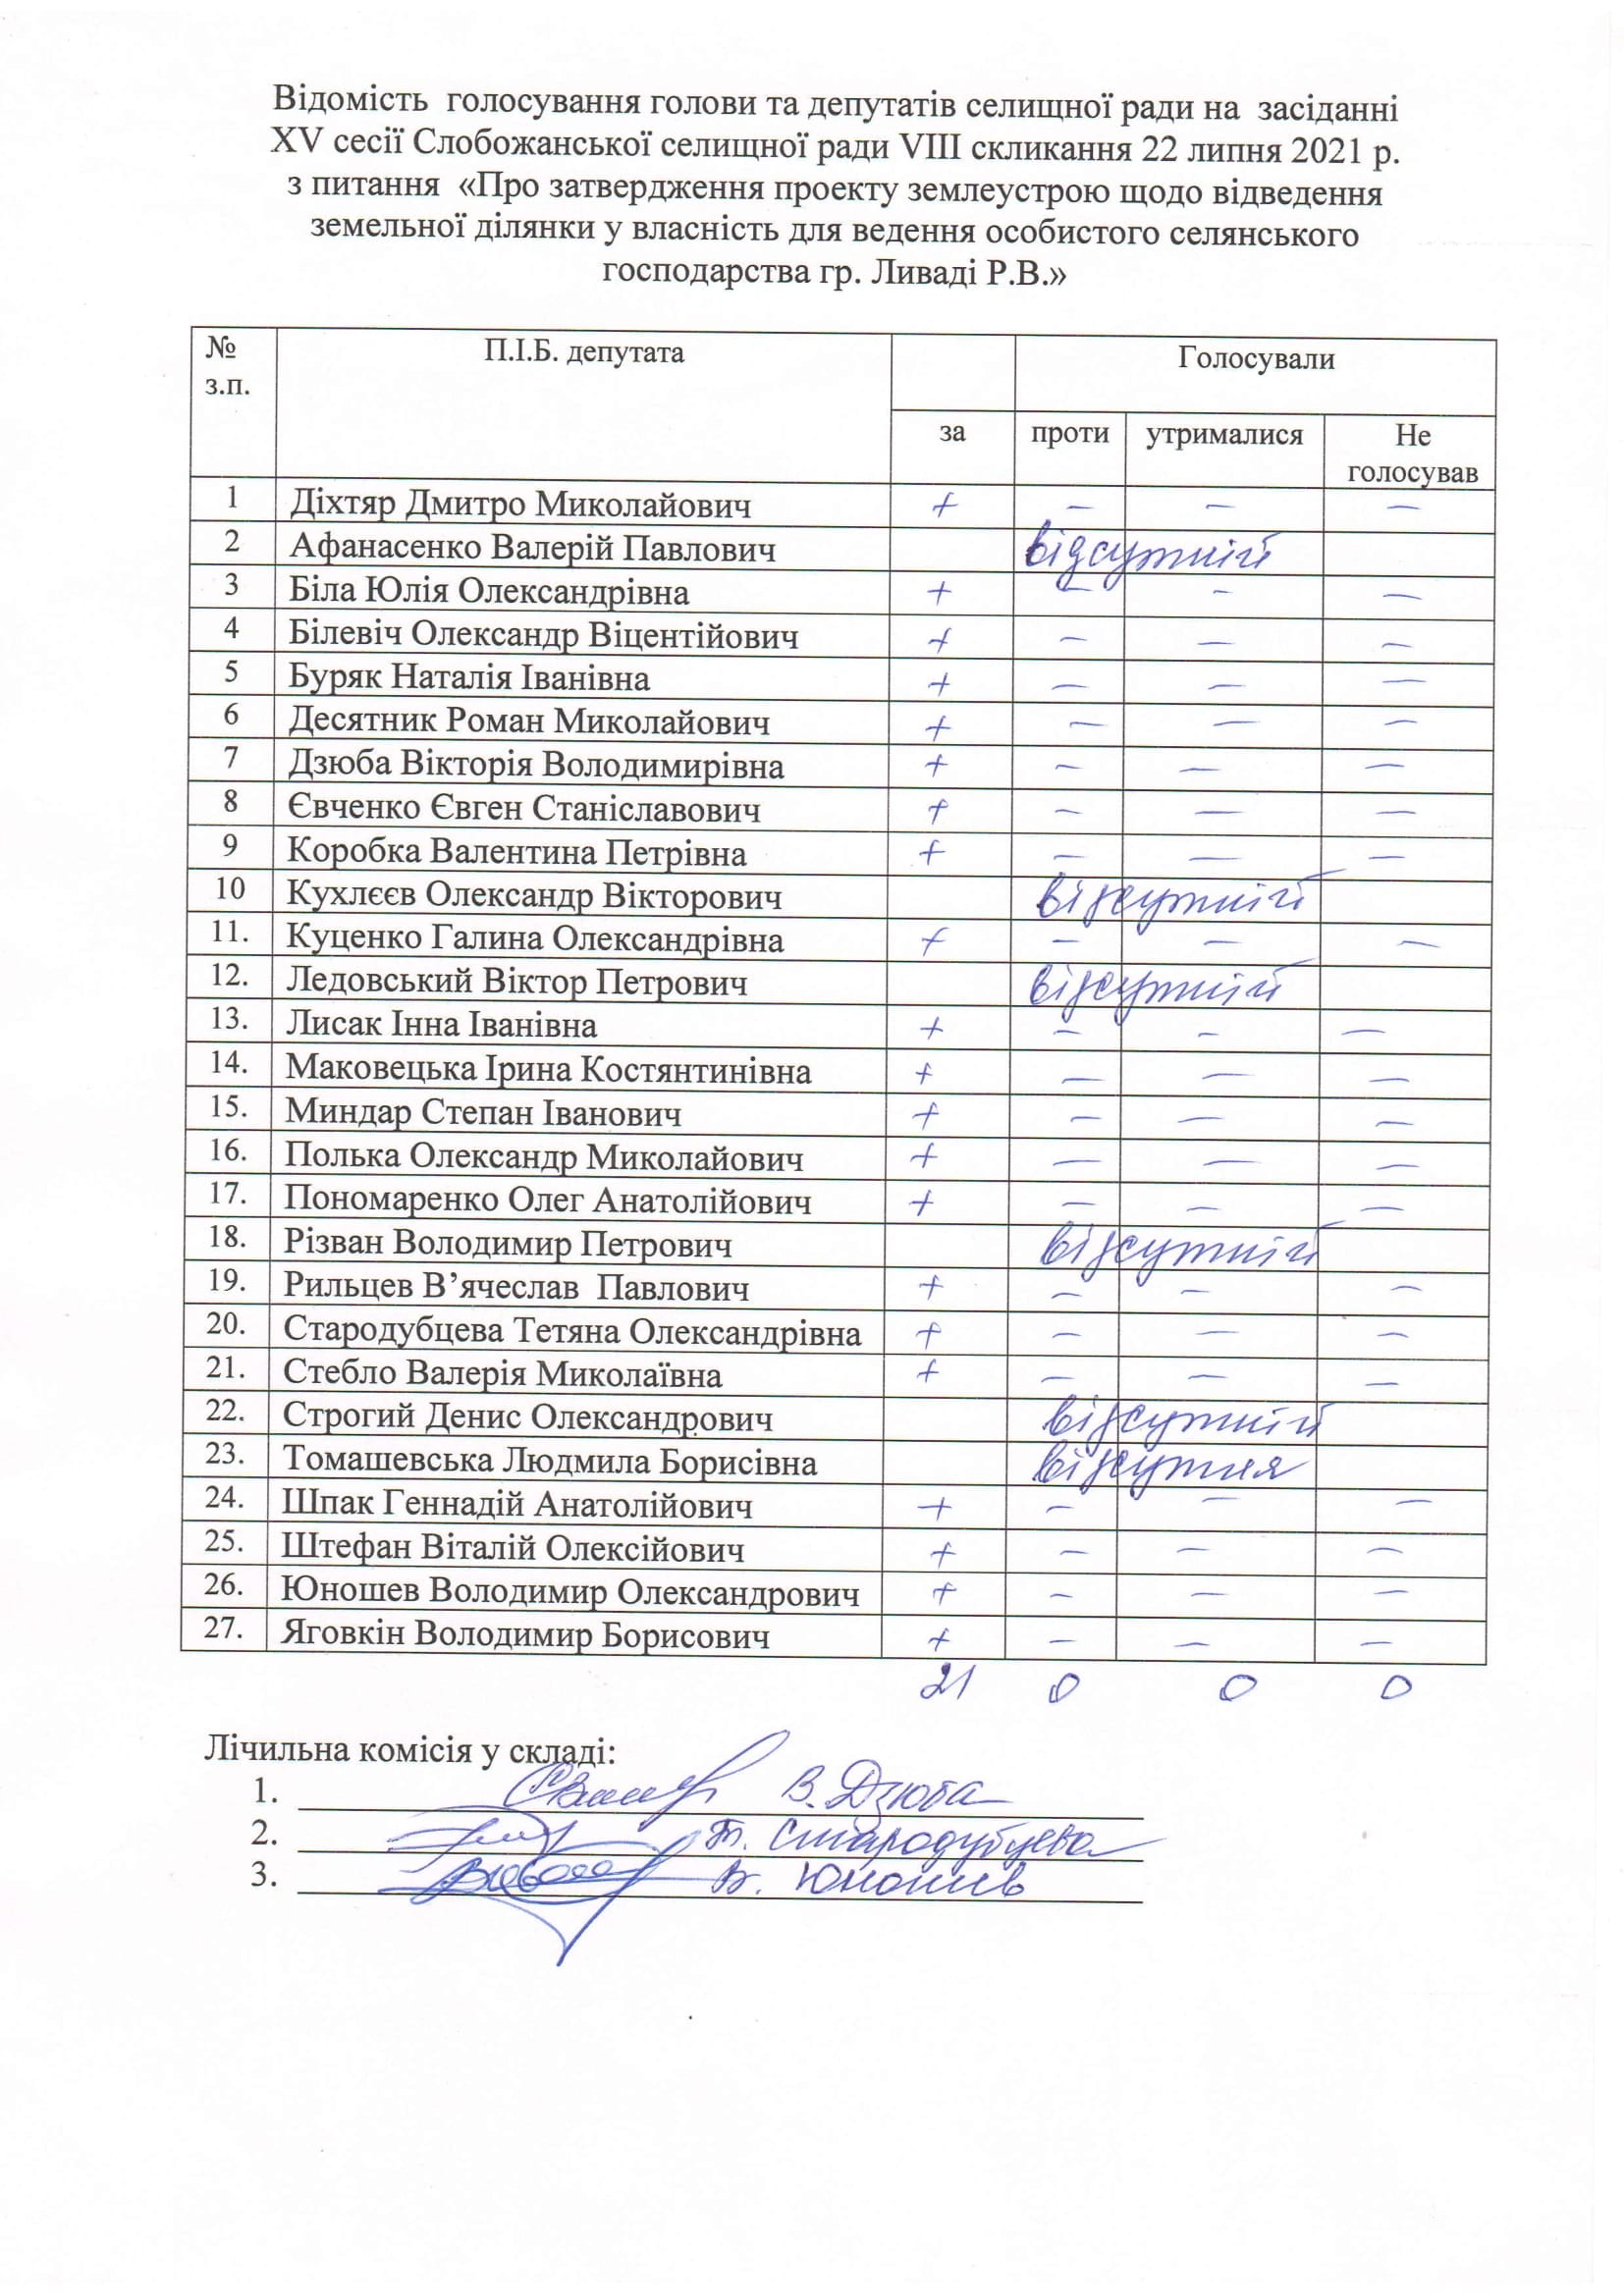 Відомість голосування голови та депутатів селищної ради на засіданні
XV сесії Слобожанської селищної ради VIII скликання 22 липня 2021 р.
з питання «Про затвердження проекту землеустрою щодо відведення
земельної ділянки у власність для ведення особистого селянського
господарства гр. Ливаді Р.В.»
№ з.п. П.І.Б. депутата Голосували
за проти утрималися Не голосував
1 Діхтяр Дмитро Миколайович + — — —
2 Афанасенко Валерій Павлович відсутній
3 Біла Юлія Олександрівна + — — —
4 Білевіч Олександр Віцентійович + — — —
5 Буряк Наталія Іванівна + — — —
6 Десятник Роман Миколайович + — — —
7 Дзюба Вікторія Володимирівна + — — —
8 Євченко Євген Станіславович + — — —
9 Коробка Валентина Петрівна + — — —
10 Кухлєєв Олександр Вікторович відсутній
11. Куценко Галина Олександрівна + — — —
12. Ледовський Віктор Петрович відсутній
13. Лисак Інна Іванівна + — — —
14. Маковецька Ірина Костянтинівна + — — —
15. Миндар Степан Іванович + — — —
16. Полька Олександр Миколайович + — — —
17. Пономаренко Олег Анатолійович + — — —
18. Різван Володимир Петрович відсутній
19. Рильцев В’ячеслав Павлович + — — —
20. Стародубцева Тетяна Олександрівна + — — —
21. Стебло Валерія Миколаївна + — — —
22. Строгий Денис Олександрович відсутній
23. Томашевська Людмила Борисівна відсутня
24. Шпак Геннадій Анатолійович + — — —
25. Штефан Віталій Олексійович + — — —
26. Юношев Володимир Олександрович + — — —
27. Яговкін Володимир Борисович + — — —
21 0 0 0
Лічильна комісія у складі:
1. В. Дзюба
2. Т. Стародубцева
3. В. Юношев